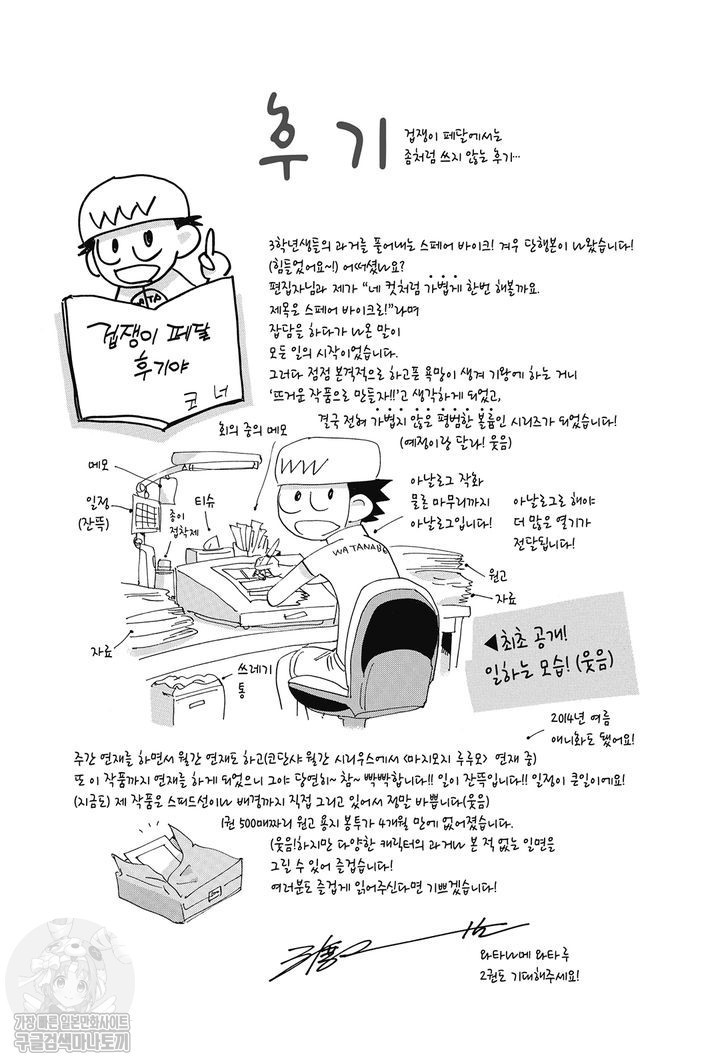 후기
겁쟁이 페달에서는
좀처럼 쓰지 않는 후기…
겁쟁이 페달
후기야
코너
3학년생들의 과거를 풀어내는 스페어 바이크! 겨우 단행본이 나왔습니다!
(힘들었어요~!) 어떠셨나요?
편집자님과 제가 “네 컷처럼 가볍게 한번 해볼까요.
제목은 스페어 바이크로!”라며
잡담을 하다가 나온 말이
모든 일의 시작이었습니다.
그러다 점점 본격적으로 하고픈 욕망이 생겨 기왕에 하는 거니
‘뜨거운 작품으로 만들자!!’고 생각하게 되었고,
결국 전혀 가볍지 않은 평범한 볼륨인 시리즈가 되었습니다!
(예정이랑 달라! 웃음)
회의 중의 메모
메모
일정
(잔뜩)
종이
접착제
티슈
아날로그 작화
물론 마무리까지
아날로그입니다!
아날로그로 해야
더 많은 열기가
전달됩니다!
WATANABE
원고
자료
자료
쓰레기
통
◀최초 공개!
일하는 모습! (웃음)
2014년 여름
애니화도 됐어요!
주간 연재를 하면서 월간 연재도 하고(코단샤 월간 시리우스에서 <마지모지 루루모> 연재 중)
또 이 작품까지 연재를 하게 되었으니 그야 당연히~ 참~ 빡빡합니다!! 일이 잔뜩입니다!! 일정이 큰일이에요!
(지금도) 제 작품은 스피드선이나 배경까지 직접 그리고 있어서 정말 바쁩니다(웃음)
1권 500매짜리 원고 용지 봉투가 4개월 만에 없어졌습니다.
(웃음)하지만 다양한 캐릭터의 과거나 본 적 없는 일면을
그릴 수 있어 즐겁습니다!
여러분도 즐겁게 읽어주신다면 기쁘겠습니다!
와타나베 와타루
2권도 기대해주세요!
가장 빠른 일본만화사이트
구글검색마나토끼